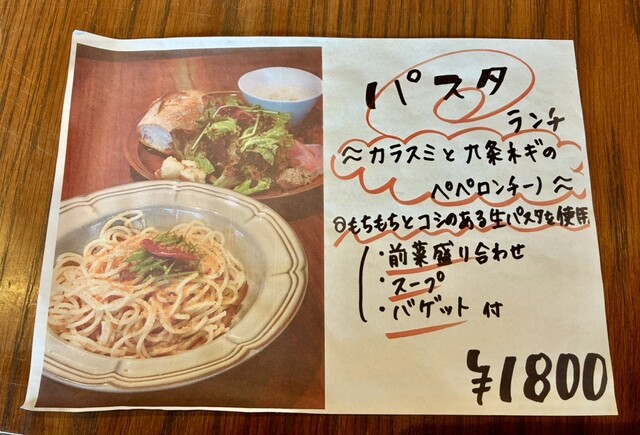 パスタ
ランチ
～カラスミと九条ネギの
ペペロンチーノ～
◎もちもちとコシのある生パスタを使用
・前菜盛り合わせ
・スープ
・バゲット 付
¥1800